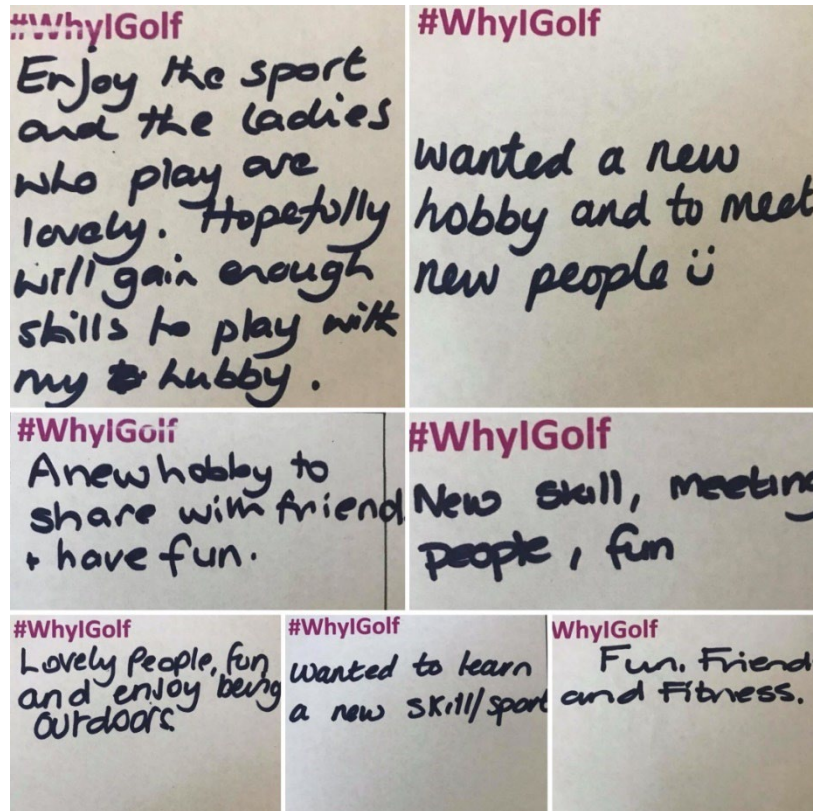 #WhyIGolf
Enjoy the sport
and the ladies
who play are
lovely. Hopefully
will gain enough
skills to play with
my hubby.
#WhyIGolf
wanted a new
hobby and to meet
new people ü
#WhyIGolf
A new hobby to
share with friend
+ have fun.
#WhyIGolf
New skill, meeting
people, fun
#WhyIGolf
Lovely People, fun
and enjoy being
outdoors
#WhyIGolf
wanted to learn
a new skill/sport
WhyIGolf
Fun, Friend
and Fitness.